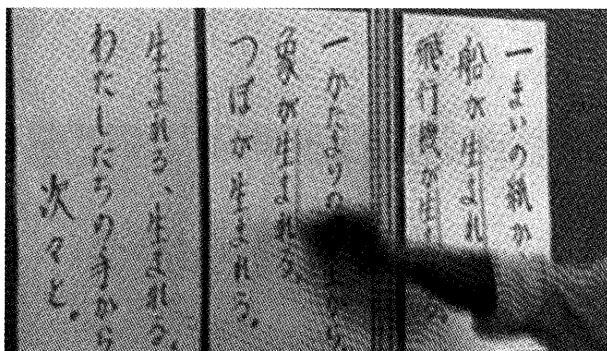 一まいの紙か
船が生まれ
飛行機が生ま
一かたまりの
から、
象が生まれる。
つぼが生まれる。
生まれる、生まれる。
わたしたちの手から
次々と。